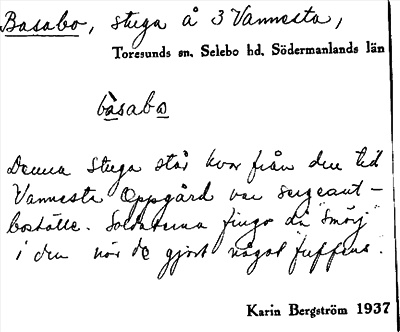 Basabo, stuga å 3 Vannesta,
Toresunds sn. Selebo hd. Södermanlands län
bàsabɷ
Denna stuga står kvar från den tid
Vannesta Oppgård var sergeant-
boställe. Soldaterna fingo då "smörj"
i den när de gjort något fuffens.
Karin Bergström 1937